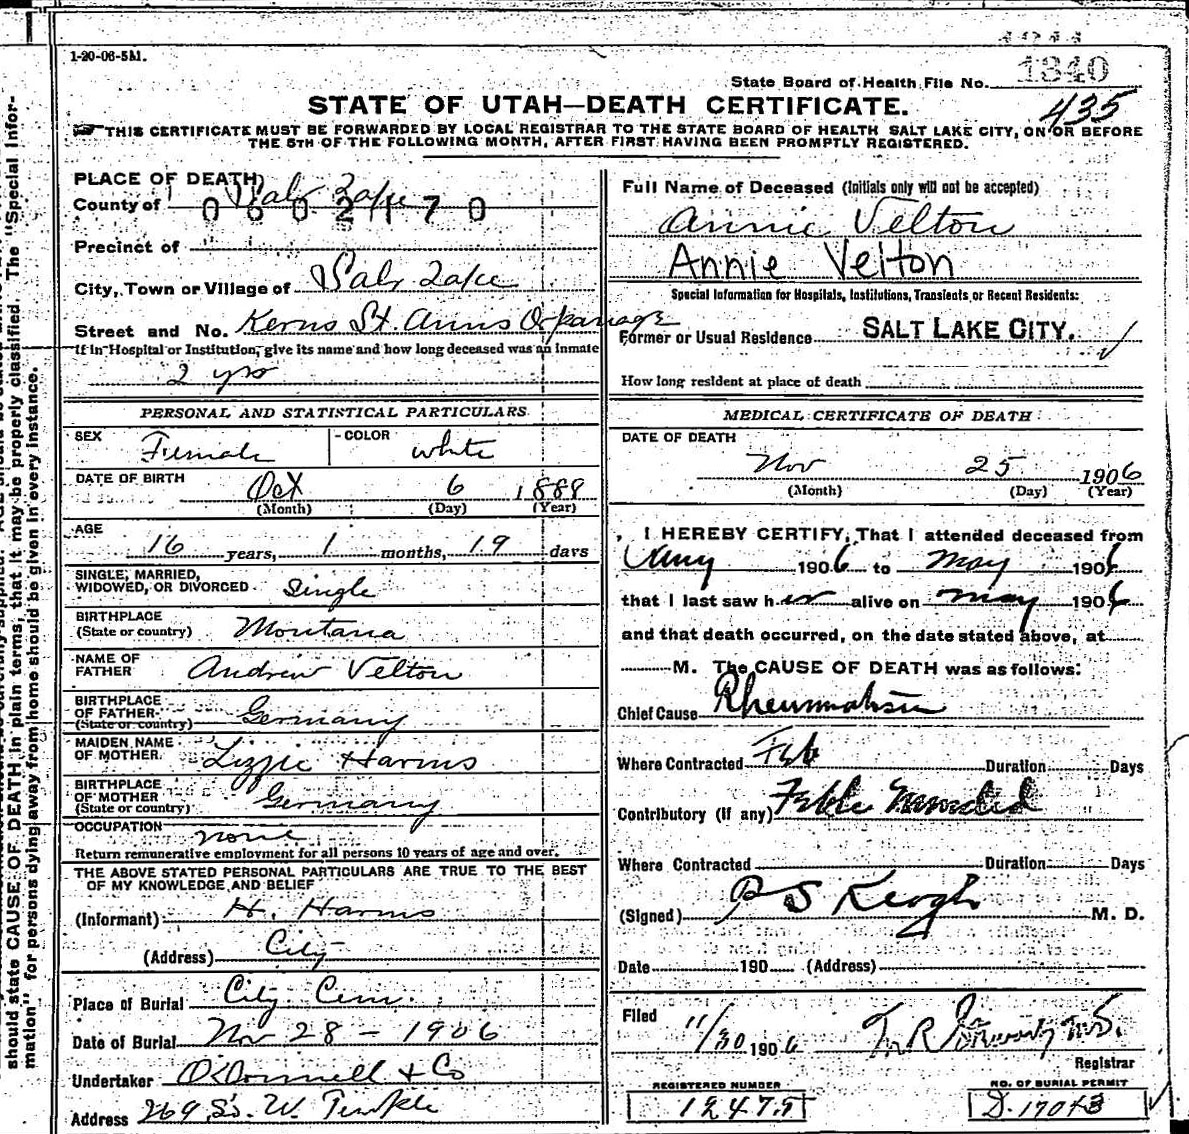 1-20-06-5M.
1340
State Board of Health File No.
435
STATE OF UTAH—DEATH CERTIFICATE.
THIS CERTIFICATE MUST BE FORWARDED BY LOCAL REGISTRAR TO THE STATE BOARD OF HEALTH SALT LAKE CITY, ON OR BEFORE
THE 5TH OF THE FOLLOWING MONTH, AFTER FIRST HAVING BEEN PROMPTLY REGISTERED.
PLACE OF DEATH
County of Salt Lake
0602170
Precinct of
City, Town or Village of Salt Lake
Street and No. Kerns St. Anns Orphanage
If in Hospital or Institution, give its name and how long deceased was an inmate
2 yrs
PERSONAL AND STATISTICAL PARTICULARS
SEX Female COLOR white
DATE OF BIRTH Oct 6 1888
(Month) (Day) (Year)
AGE
16 years, 1 months, 19 days
SINGLE, MARRIED,
WIDOWED, OR DIVORCED Single
BIRTHPLACE
(State or country) Montana
NAME OF
FATHER Andrew Velton
BIRTHPLACE
OF FATHER
(State or country) Germany
MAIDEN NAME
OF MOTHER Lizzie Harms
BIRTHPLACE
OF MOTHER
(State or country) Germany
OCCUPATION none
Return remunerative employment for all persons 10 years of age and over.
THE ABOVE STATED PERSONAL PARTICULARS ARE TRUE TO THE BEST
OF MY KNOWLEDGE AND BELIEF
(Informant) H. Harms
(Address) City
Place of Burial City Cem.
Date of Burial Nov 28 - 1906
Undertaker O'Donnell & Co
Address 269 So. W. Temple
Full Name of Deceased (Initials only will not be accepted)
Annie Velton
Annie Velton
Special Information for Hospitals, Institutions, Transients or Recent Residents:
Former or Usual Residence SALT LAKE CITY.
How long resident at place of death
MEDICAL CERTIFICATE OF DEATH
DATE OF DEATH
Nov 25 1906
(Month) (Day) (Year)
I HEREBY CERTIFY, That I attended deceased from
1906 to May 1906
that I last saw her alive on May 1906
and that death occurred, on the date stated above, at
M. The CAUSE OF DEATH was as follows:
Chief Cause Rheumatism
Where Contracted Feb Duration Days
Contributory (if any) Feble
Where Contracted Duration Days
(Signed) P S Keogh M. D.
Date 190 (Address)
Filed 11/30 1906
Registrar
REGISTERED NUMBER
12475
NO. OF BURIAL PERMIT
D. 17043
should state CAUSE OF DEATH in plain terms, that it may be properly classified. The "Special Infor-
mation" for persons dying away from home should be given in every instance.